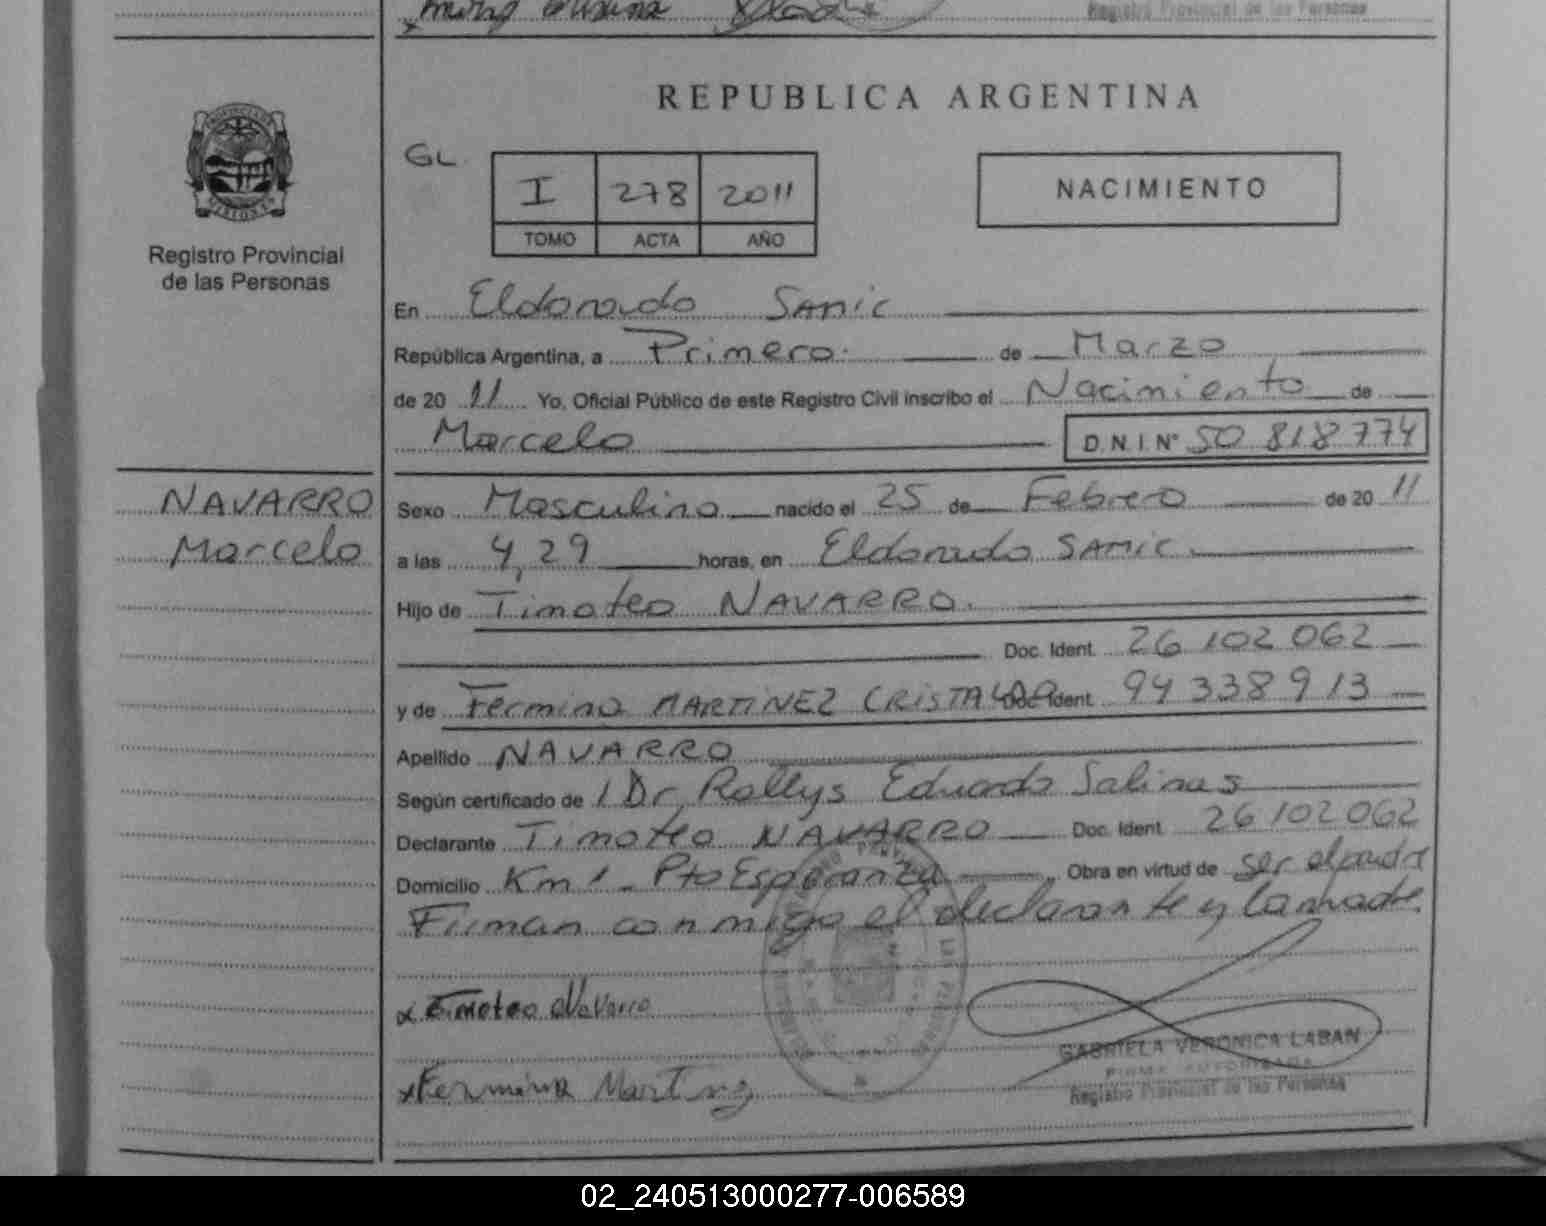 Registro Provincial de las Personas
REPUBLICA ARGENTINA
GL.
I 278 2011
TOMO ACTA AÑO
NACIMIENTO
MISIONES
Registro Provincial
de las Personas
En Eldorado SAMIC
República Argentina, a Primero. de Marzo
de 20 11 Yo, Oficial Público de este Registro Civil inscribo el Nacimiento de
Marcelo D.N.I.Nº 50 818 774
NAVARRO
Marcelo
Sexo Masculino nacido el 25 de Febrero de 20 11
a las 4,29 horas, en Eldorado SAMIC.
Hijo de Timoteo NAVARRO.
Doc. Ident. 26 102 062
y de Fermina MARTINEZ CRISTALDO Doc. Ident. 94 338 913
Apellido NAVARRO
Según certificado de / Dr. Rallys Eduardo Salinas
Declarante Timoteo NAVARRO Doc. Ident. 26 102 062
Domicilio Km 1 - Pto Esperanza Obra en virtud de ser el padre
Firman con migo el declarante y la madre.
x Timoteo Navarro
GABRIELA VERONICA LABAN
FIRMA AUTORIZADA
Registro Provincial de las Personas
x Fermina Martinez
02_240513000277-006589